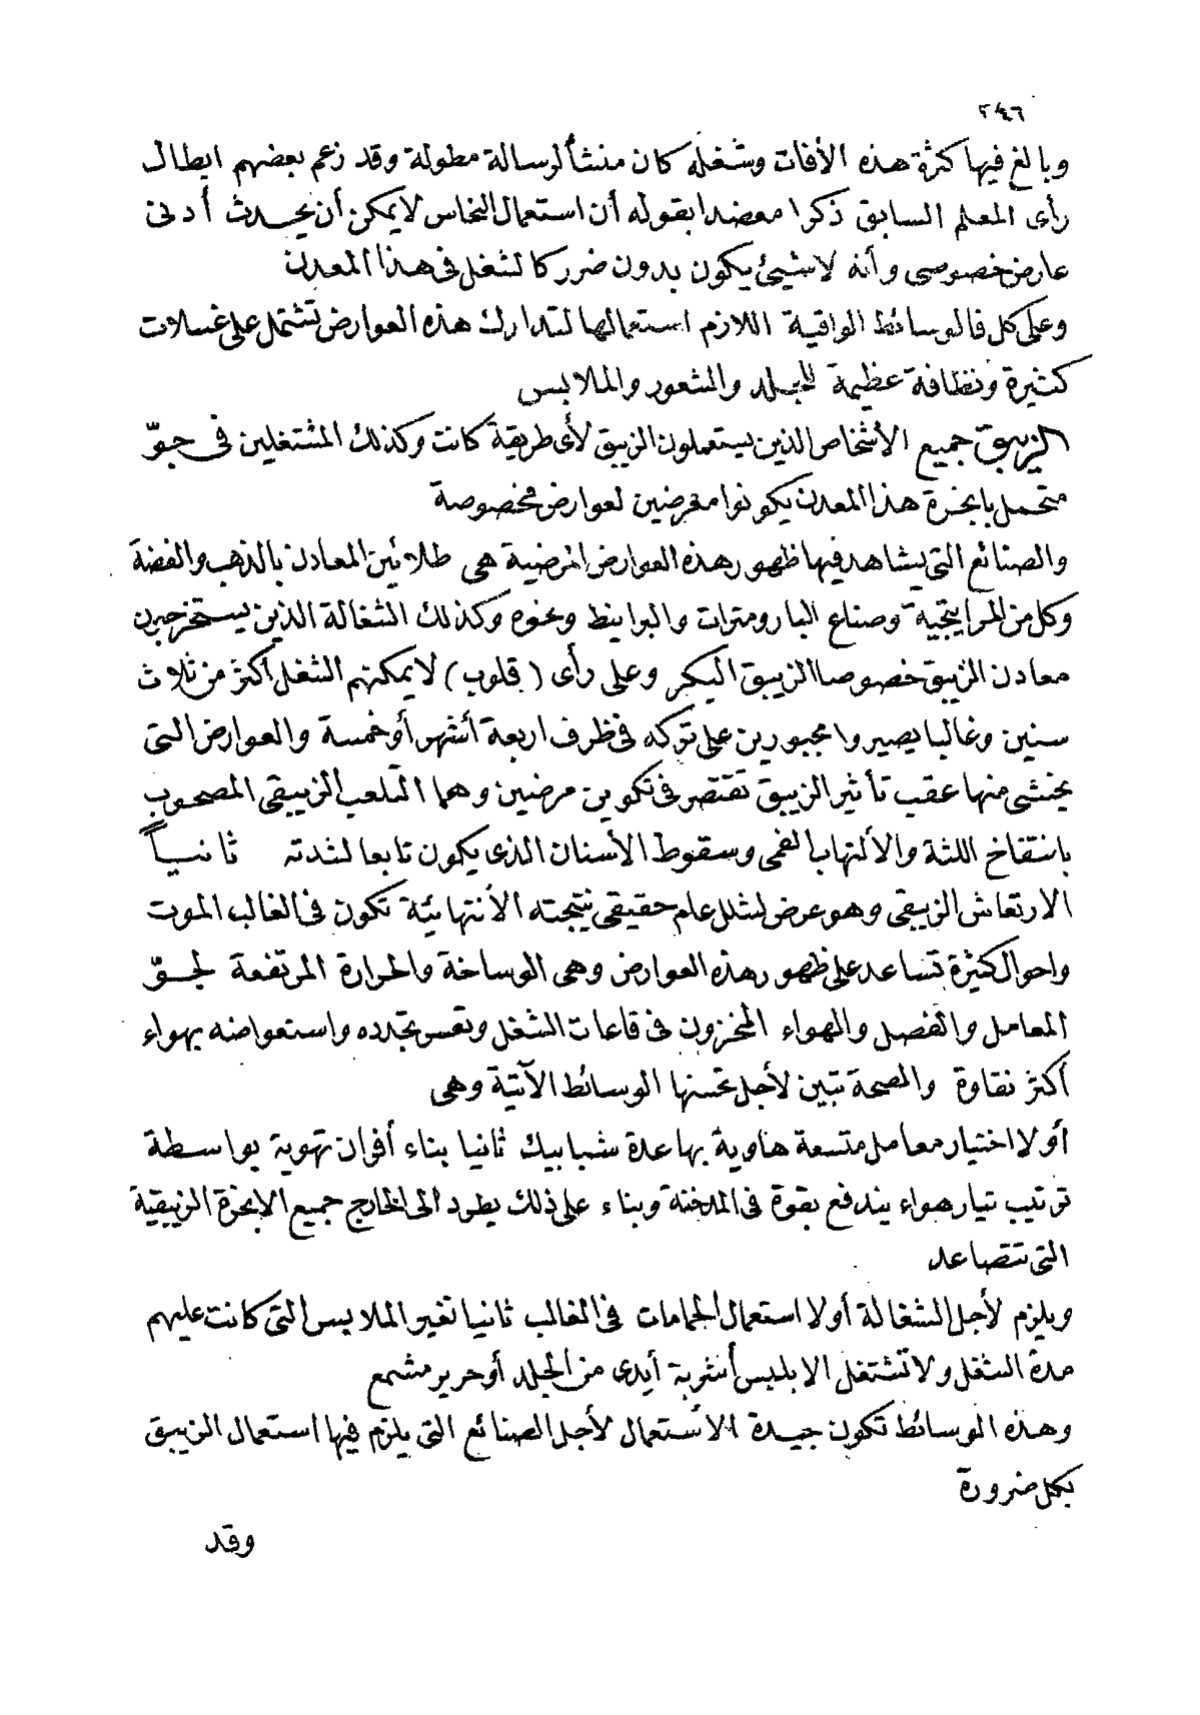 ٢٤٦
وبالغ فيها كثرة هذه الأفات وشغله كان منشأ لرسالة مطولة وقد زعم بعضهم ابطال
رأى المعلم السابق ذكرا معضدا بقوله أن استعمال النخاس لا يمكن أن يحدث أدنى
عارض خصوصى وأنه لا شيئ يكون بدون ضرر كالشغل فى هذا المعدن
وعلى كل فالوسائط الواقية اللازم استعمالها لتدارك هذه العوارض تشتمل على غسلات
كثيرة ونظافة عظيمة للجلد والشعور والملابس
الزيبق جميع الأشخاص الذين يستعملون الزيبق لأى طريقة كانت وكذلك المشتغلين فى جوّ
متحمل بابخرة هذا المعدن يكونوا معرضين لعوارض مخصوصة
والصنائع التى يشاهد فيها ظهور هذه العوارض المرضية هى طلائين المعادن بالذهب والفضة
وكل من المرايتجية وصناع البارومترات والبرانيط ونحوه وكذلك الشغالة الذين يستخرجون
معادن الزيبق خصوصا الزيبق البكر وعلى رأى (قلوب) لا يمكنهم الشغل أكثر من ثلاث
سنين وغالبا يصيروا مجبورين على تركه فى ظرف اربعة أشهر أو خمسة والعوارض التى
يخشى منها عقب تأثير الزيبق تقتصر فى تكوين مرضين وهما التلعب الزيبقى المصحوب
بانتفاخ اللثة والألتهاب الفمى وسقوط الأسنان الذى يكون تابعا لشدته ثانيـاً
الارتعاش الزيبقى وهو عرض لشلل عام حقيقى نتيجته الأنتهائية تكون فى الغالب الموت
واحوال كثيرة تساعد على ظهور هذه العوارض وهى الوساخة والحرارة المرتفعة لجوّ
المعامل والفصل والهواء المخزون فى قاعات الشغل وتعسر تجدده واستعواضه بهواء
أكثر نقاوة والصحة تبين لأجل تحسنها الوسائط الآتية وهى
أولا اختيار معامل متسعة هاوية بها عدة شبابيك ثانيا بناء أفران تهوية بواسطة
ترتيب تيار هواء يندفع بقوة فى المدخنة وبناء على ذلك يطرد الى الخارج جميع الابخرة الزيبقية
التى تتصاعد
ويلزم لأجل الشغالة أولا استعمال الحمامات فى الغالب ثانيا تغير الملابس التى كانت عليهم
مدة الشغل ولا تشتغل الا بلبس أشربة أيدى من الجلد أو حرير مشمع
وهذه الوسائط تكون جيدة الاستعمال لأجل الصنائع التى يلزم فيها استعمال الزيبق
بكل ضرورة
وقد